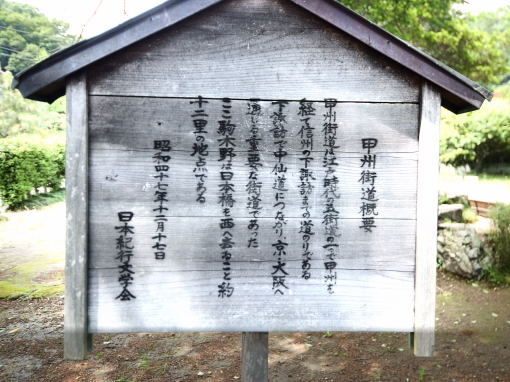 甲州街道概要
甲州街道は江戸時代の五街道の一つで甲州を
経て信州の下諏訪までの道のりである
下諏訪で中仙道につながり京・大阪へ
通じる重要な街道であった
ここ駒木野は日本橋を西へ去ること約
十二里の地点である
昭和四十七年十二月十七日
日本紀行文学会